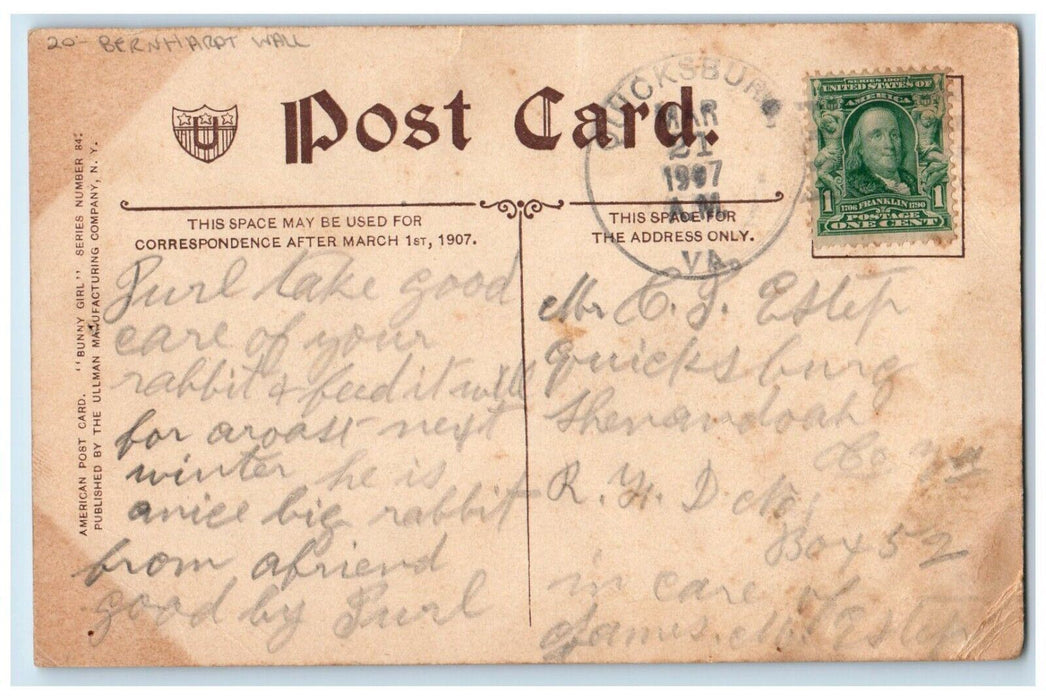 20- BERNHARDT WALL
U
Post Card.
QUICKSBURG
MAR
21
1907
A.M.
VA.
SERIES 1902
UNITED STATES OF
AMERICA
1
1
1706 FRANKLIN 1790
POSTAGE
ONE CENT
THIS SPACE MAY BE USED FOR
CORRESPONDENCE AFTER MARCH 1ST, 1907.
THIS SPACE FOR
THE ADDRESS ONLY.
AMERICAN POST CARD. "BUNNY GIRL" SERIES NUMBER 84.
PUBLISHED BY THE ULLMAN MANUFACTURING COMPANY, N. Y.
Purl take good
care of your
rabbit & feed it well
for a roast next
winter he is
a nice big rabbit
from a friend
good by Purl
Mr C. J. Estep
Quicksburg
Shenandoah
Co Va
R. F. D
Box 52
in care of
James. M. Estep